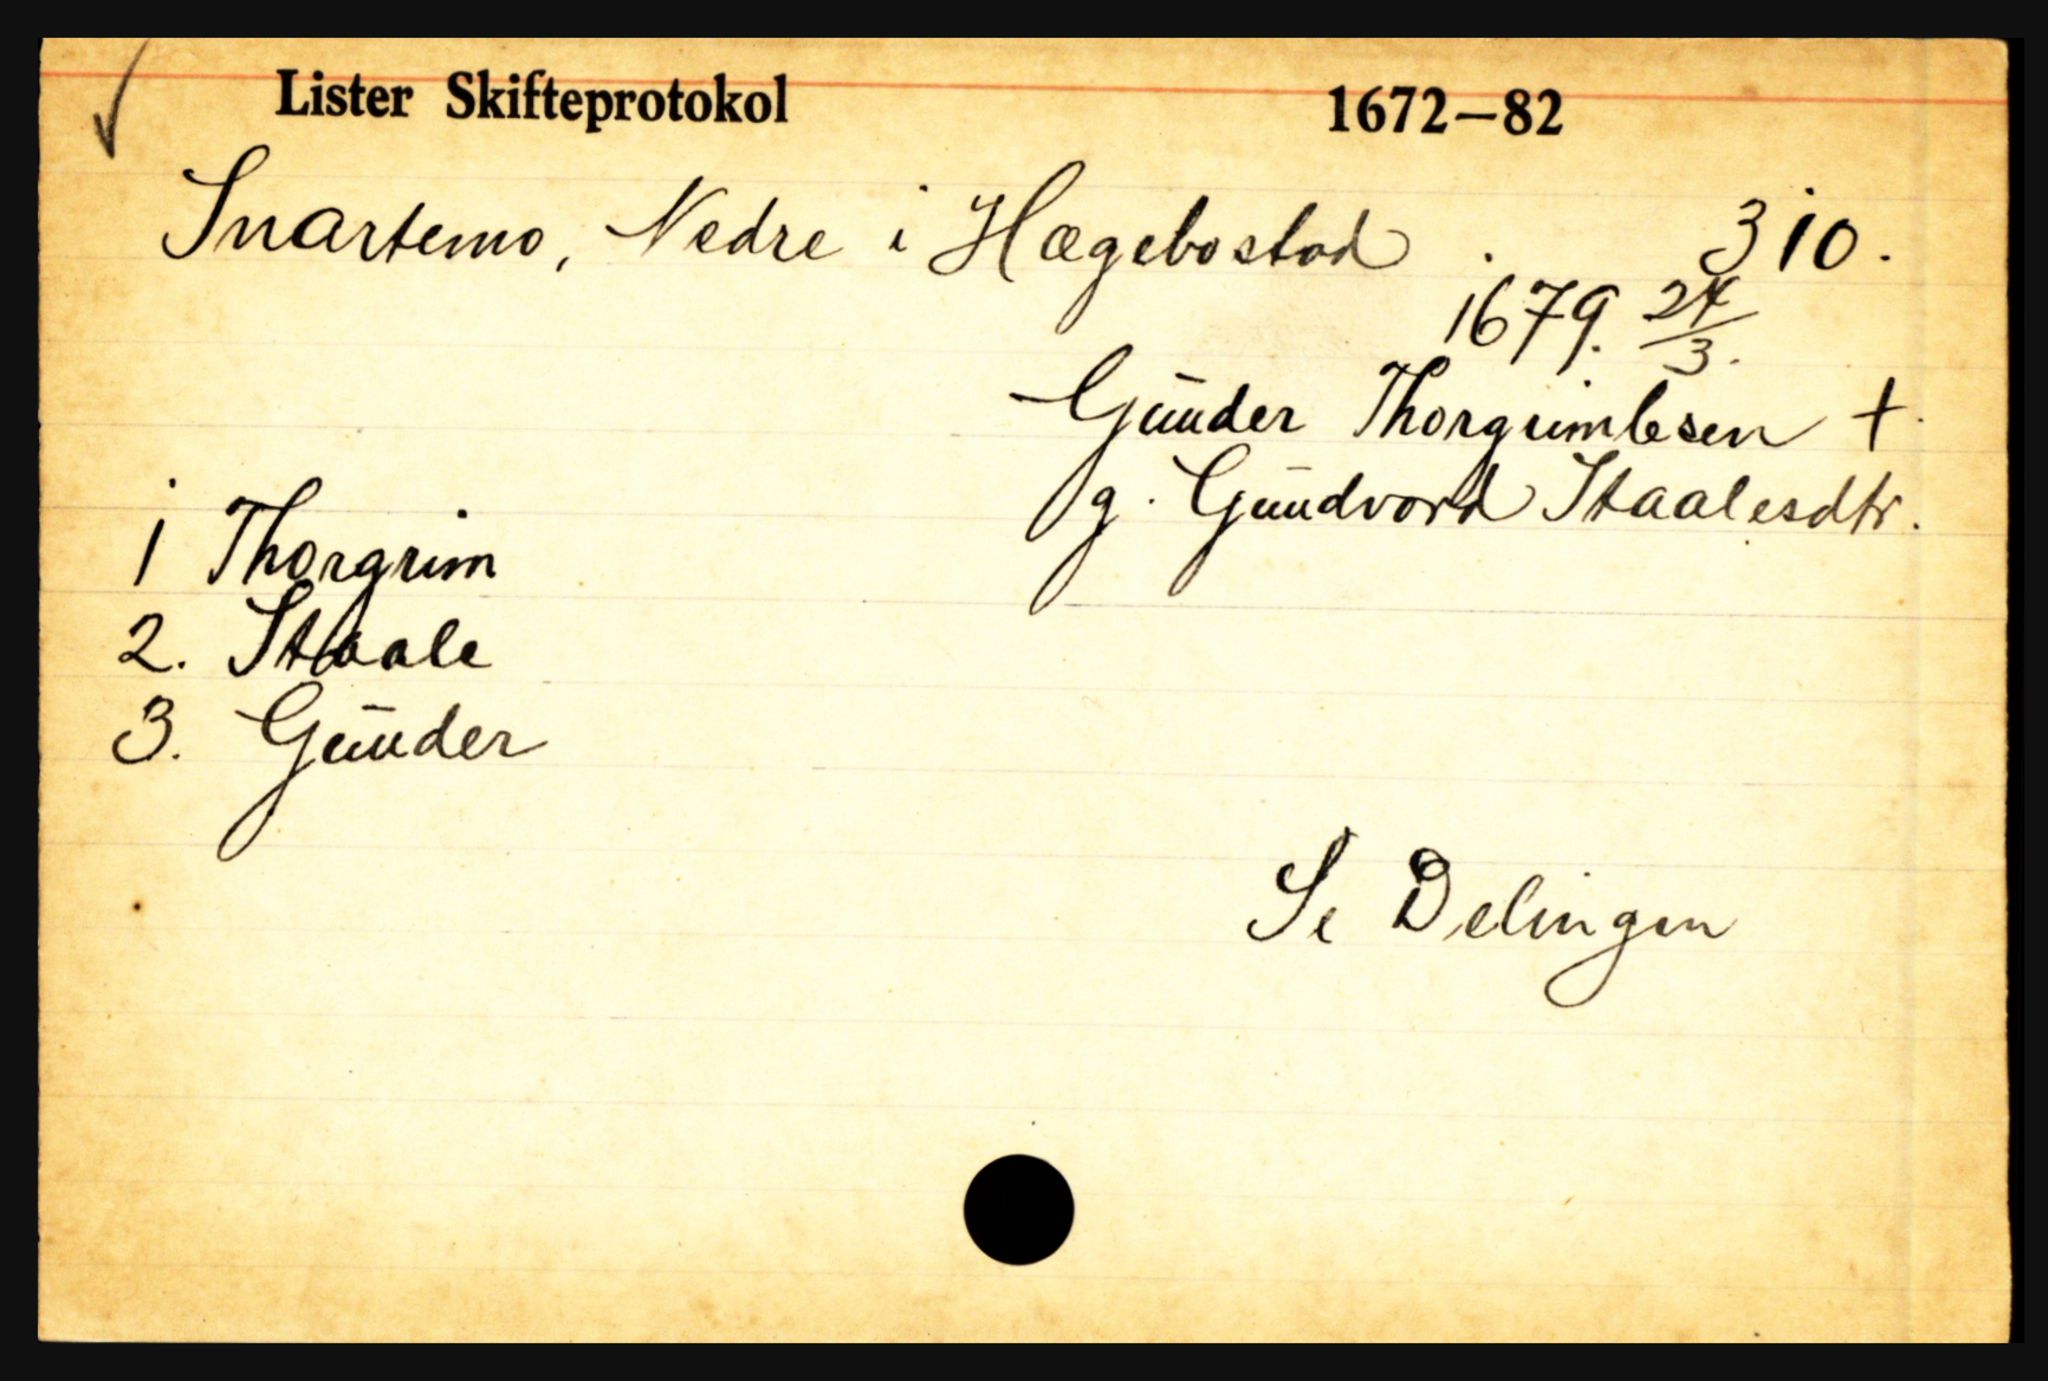 Lister Skifteprotokol 1672—82
Snartemo, Nedre i Hægebostad. 310.
1679. 24/3.
Gunder Thorgrimbesen +
g. Gundvord Staalesdtr.
1 Thorgrim
2. Staale
3. Gunder
Se Delingen